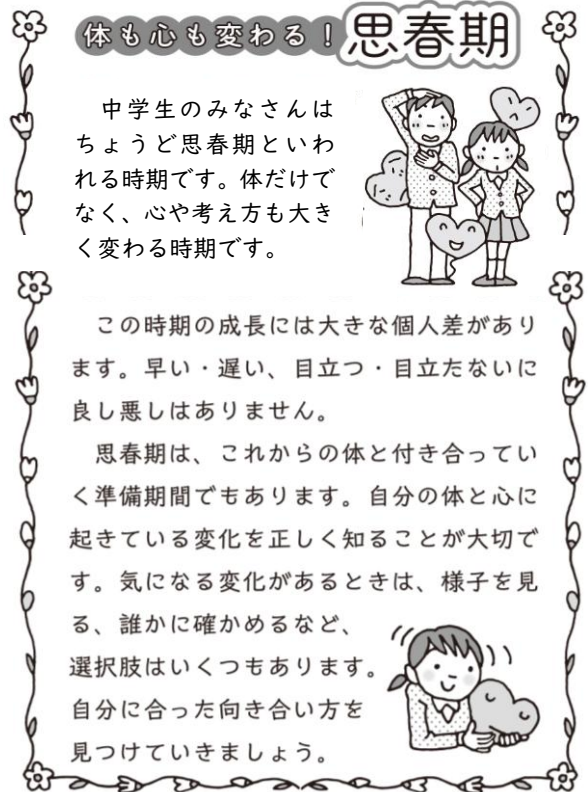 体も心も変わる！思春期
中学生のみなさんは
ちょうど思春期といわ
れる時期です。体だけで
なく、心や考え方も大き
く変わる時期です。
この時期の成長には大きな個人差があり
ます。早い・遅い、目立つ・目立たないに
良し悪しはありません。
思春期は、これからの体と付き合ってい
く準備期間でもあります。自分の体と心に
起きている変化を正しく知ることが大切で
す。気になる変化があるときは、様子を見
る、誰かに確かめるなど、
選択肢はいくつもあります。
自分に合った向き合い方を
見つけていきましょう。